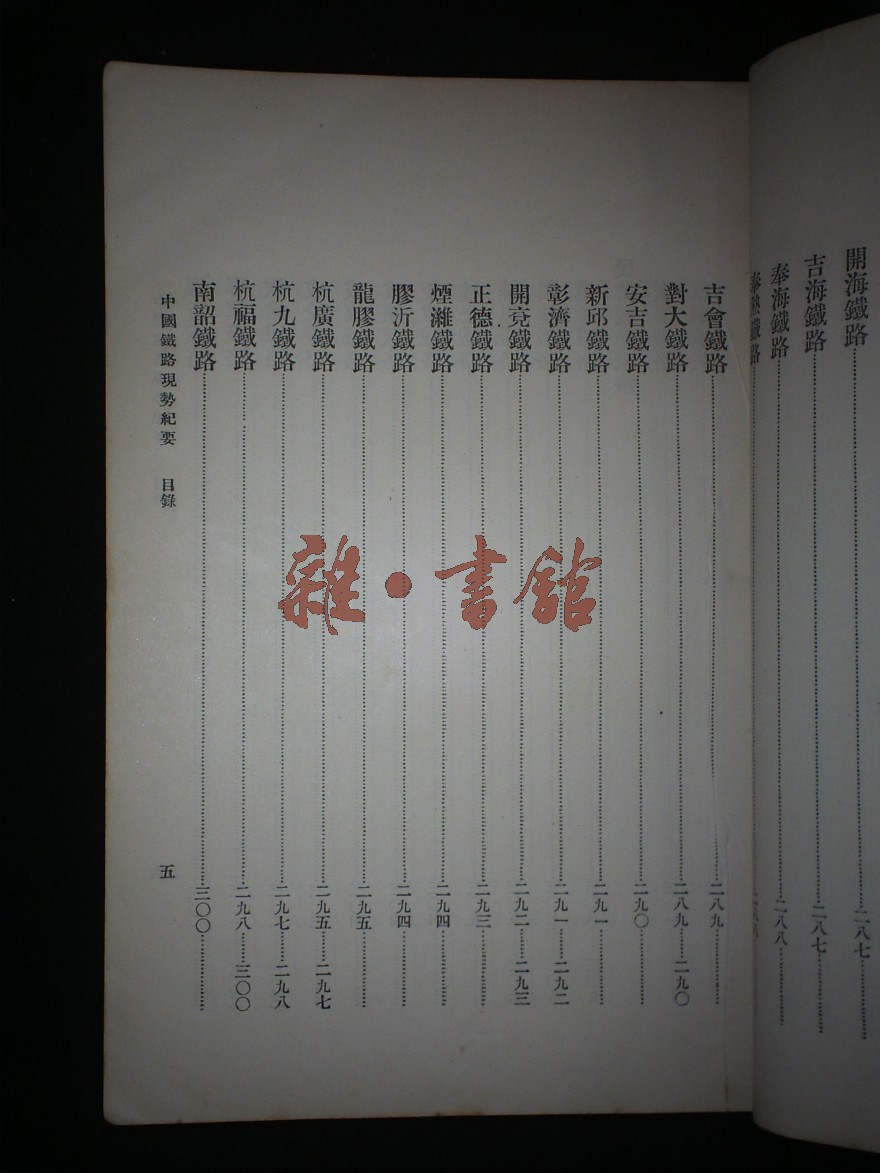 開海鐵路……二八七……
吉海鐵路……二八七……
奉海鐵路……二八八……
鐵路……
吉會鐵路……二八九……
對大鐵路……二八九……二九〇
安吉鐵路……二九〇……
新邱鐵路……二九一……
彰濟鐵路……二九一……二九二
開兗鐵路……二九二……二九三
正德鐵路……二九三……
煙濰鐵路……二九四……
膠沂鐵路……二九四……
龍膠鐵路……二九五……
杭廣鐵路……二九五……二九七
杭九鐵路……二九七……二九八
杭福鐵路……二九八……三〇〇
南韶鐵路……三〇〇……
中國鐵路現勢紀要 目錄 五
雜·書館